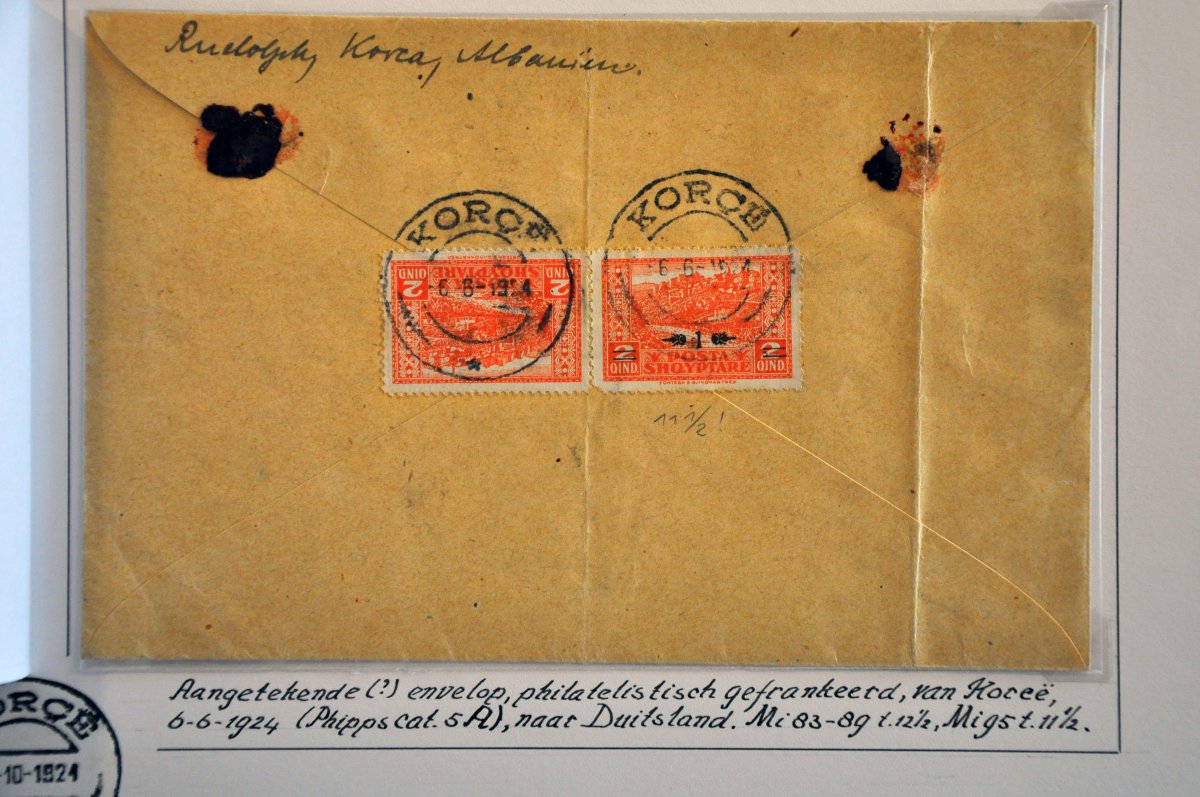 Rudolph, Korca, Albanien.
KORÇË
KORÇË
-6-6-1924
-6-6-1924
2 QIND
SHQYPTARE
2 QIND
1
2 QIND.
POSTA
SHQYPTARE
2 QIND.
11 1/2!
Aangetekende (?) envelop, philatelistisch gefrankeerd, van Korcë,
6-6-1924 (Phipps cat. 5A), naar Duitsland. Mi 83-89 t. 12½, Mi 95 t. 11½.
ORÇË
-10-1924